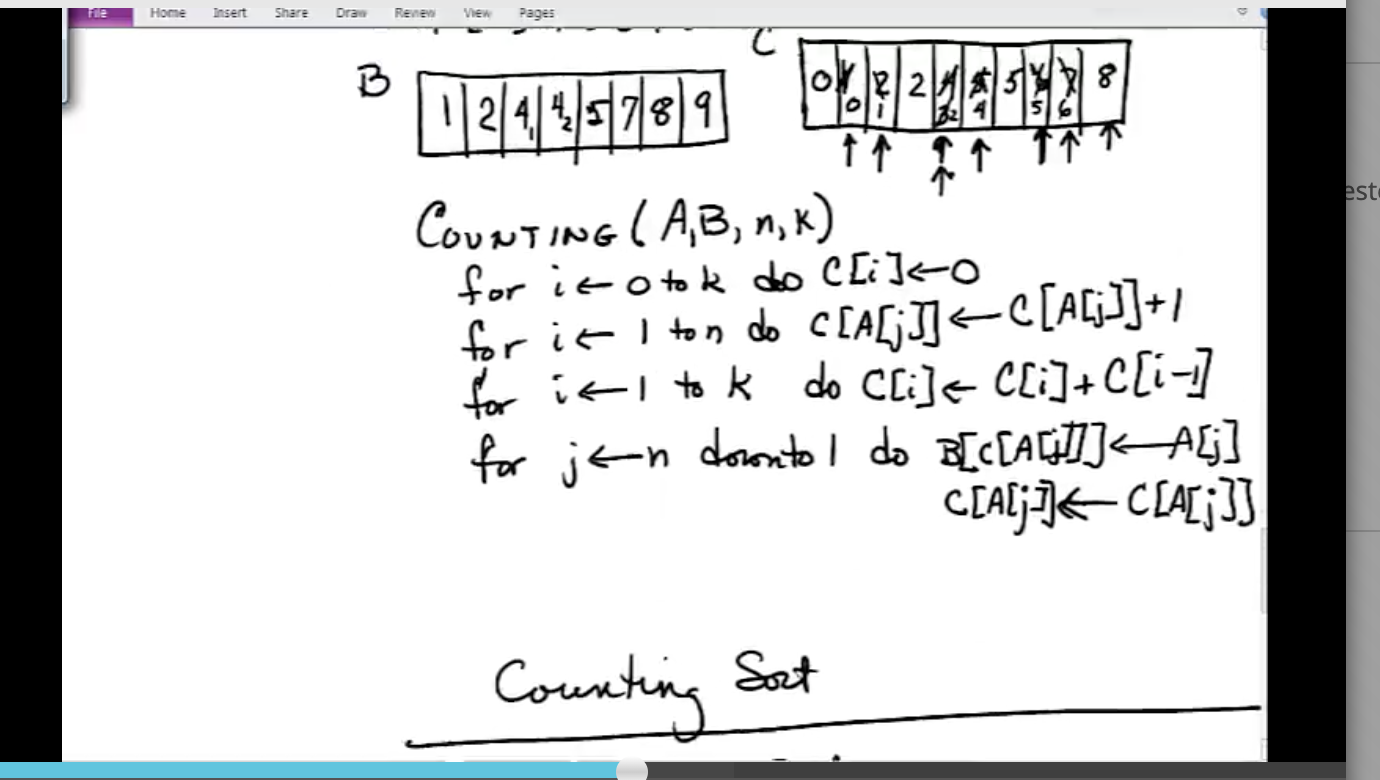 File Home Insert Share Draw Review View Pages
C
B
1 2 4₁ 4₂ 5 7 8 9
0 1 2 2 4 5 5 6 7 8
0 1 3 2 4 5 6
COUNTING (A, B, n, k)
for i ← 0 to k do C[i] ← 0
for i ← 1 to n do C[A[j]] ← C[A[j]] + 1
for i ← 1 to k do C[i] ← C[i] + C[i-1]
for j ← n downto 1 do B[C[A[j]]] ← A[j]
C[A[j]] ← C[A[j]]
Counting Sort